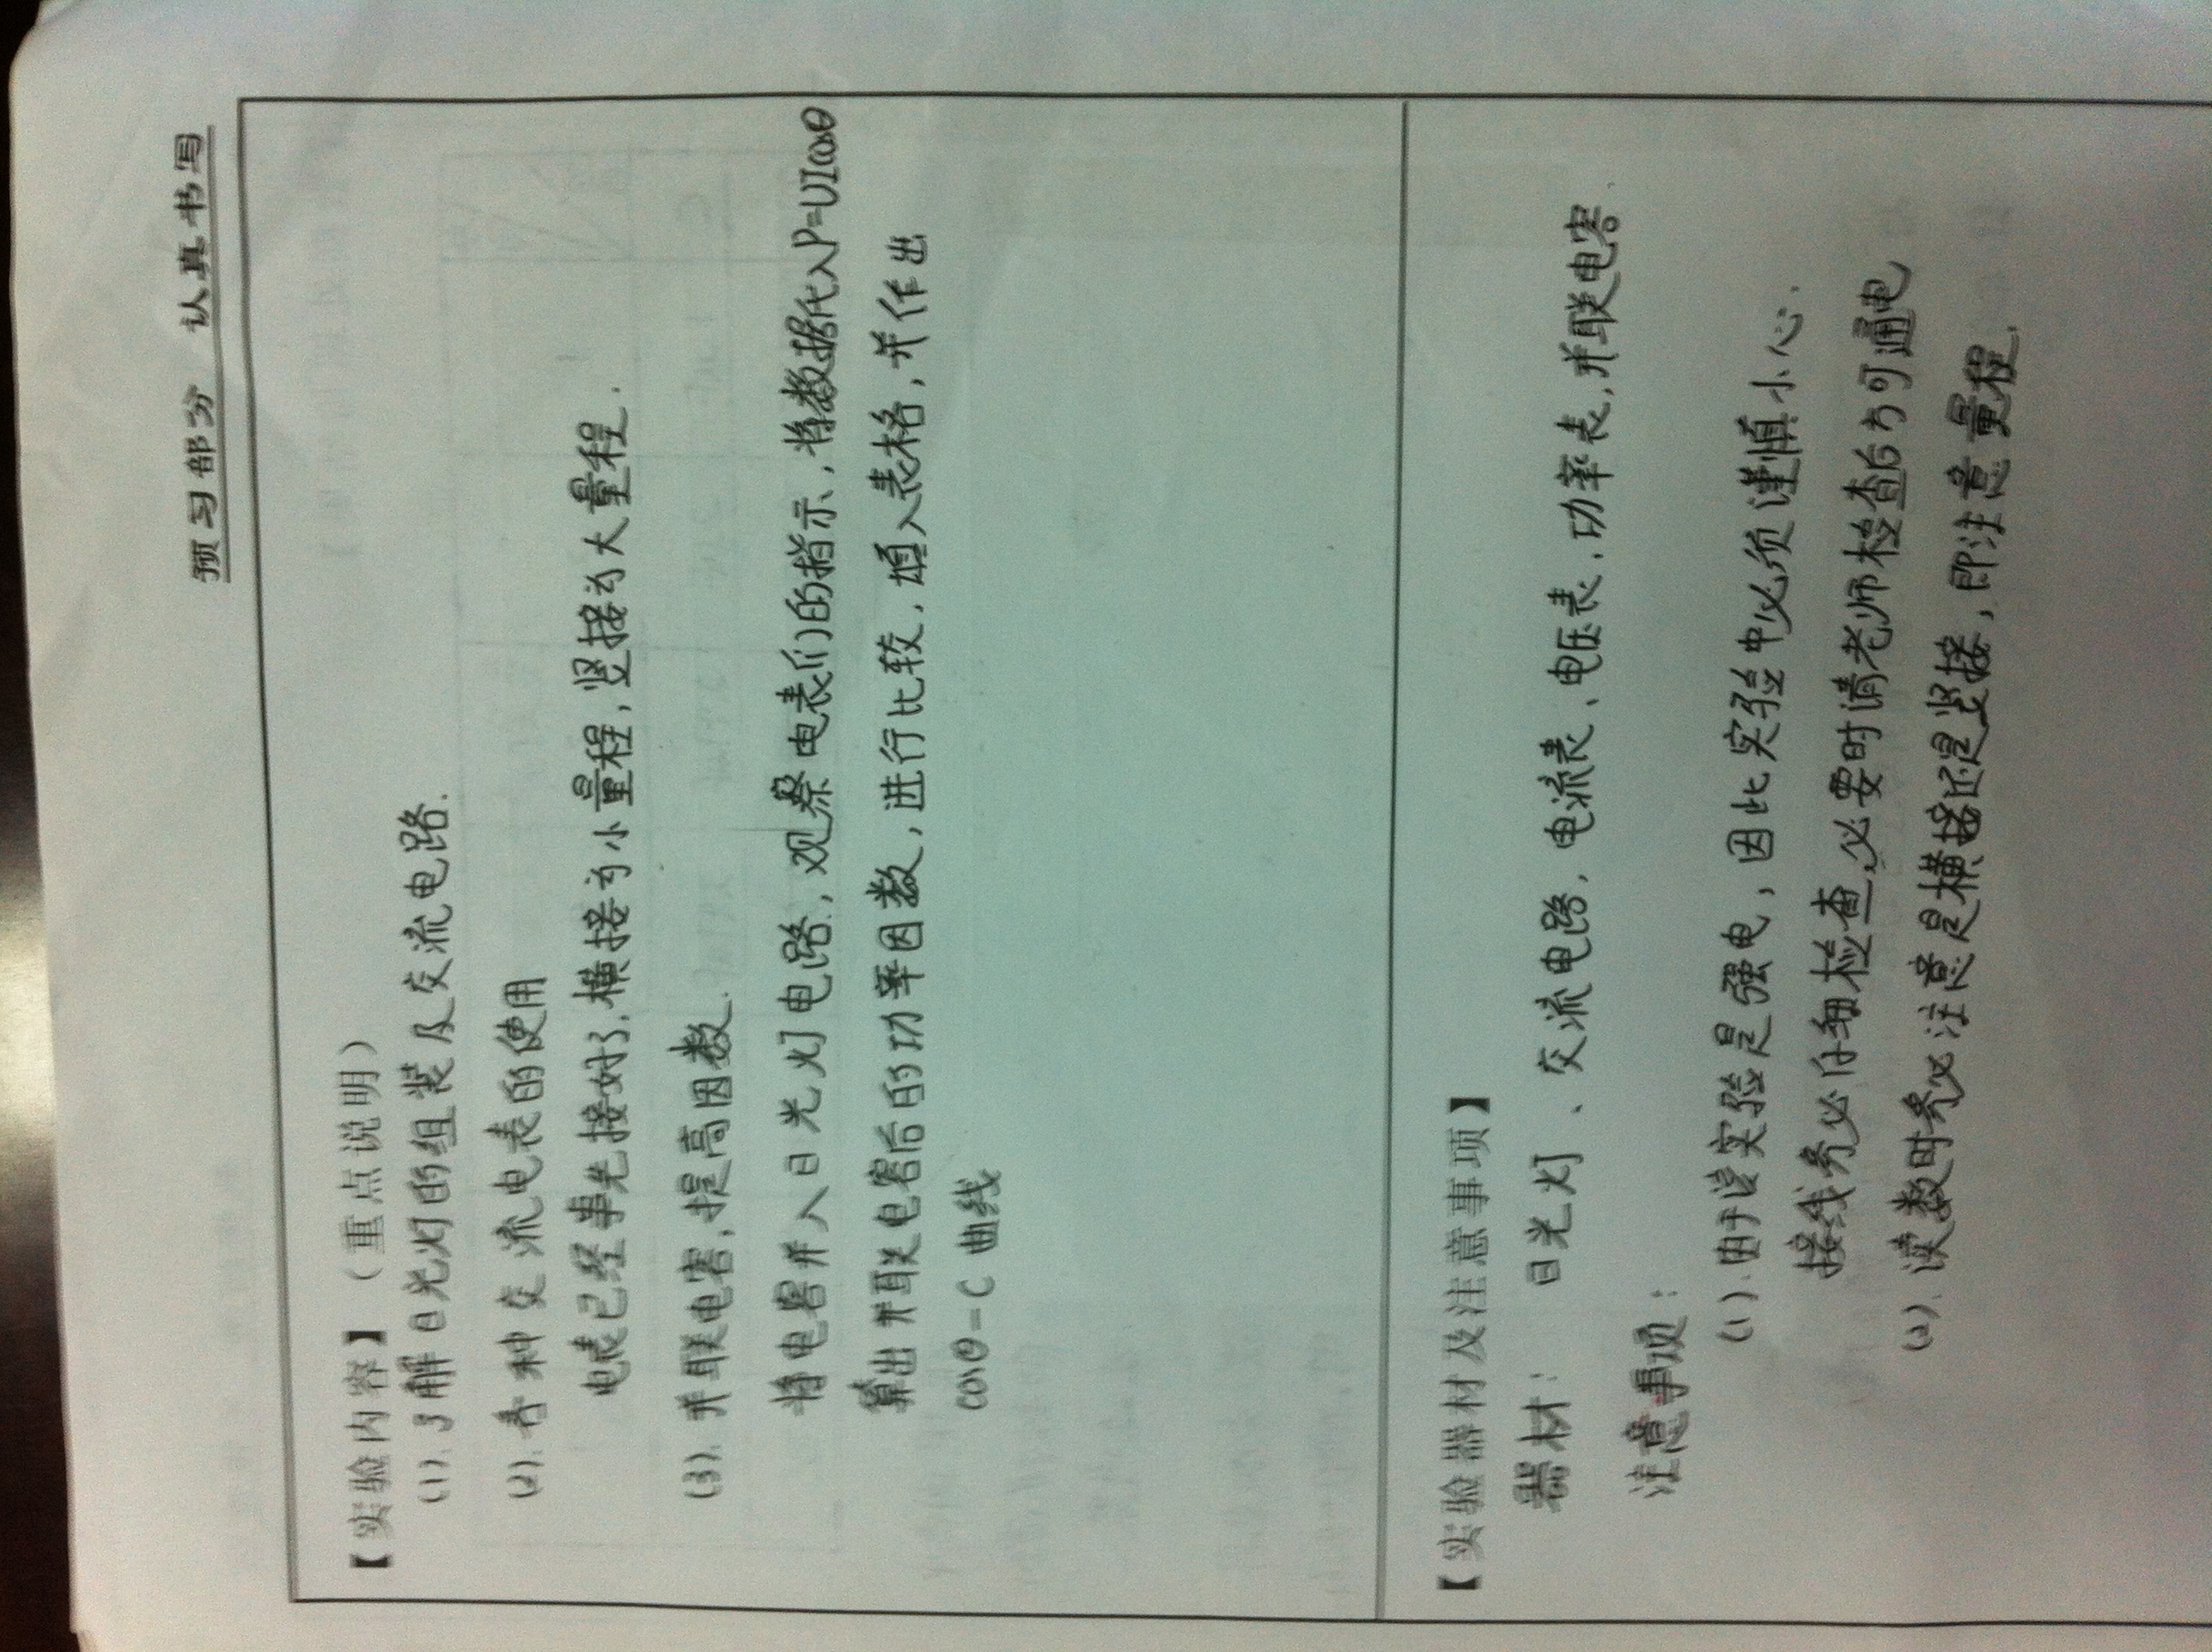 预习部分 认真书写
【实验内容】（重点说明）
(1). 了解日光灯的组装及交流电路.
(2). 各种交流电表的使用
电表已经事先接好了, 横接为小量程, 竖接为大量程.
(3). 并联电容, 提高因数.
将电容并入日光灯电路, 观察电表们的指示, 将数据代入P=UIcosθ
算出并联电容后的功率因数, 进行比较, 填入表格, 并作出
cosθ-C 曲线
【实验器材及注意事项】
器材: 日光灯、交流电路, 电流表、电压表、功率表, 并联电容.
注意事项:
(1). 由于该实验是强电, 因此实验中必须谨慎小心.
接线务必仔细检查, 必要时请老师检查后方可通电
(2). 读数时务必注意是横接还是竖接, 即注意量程.